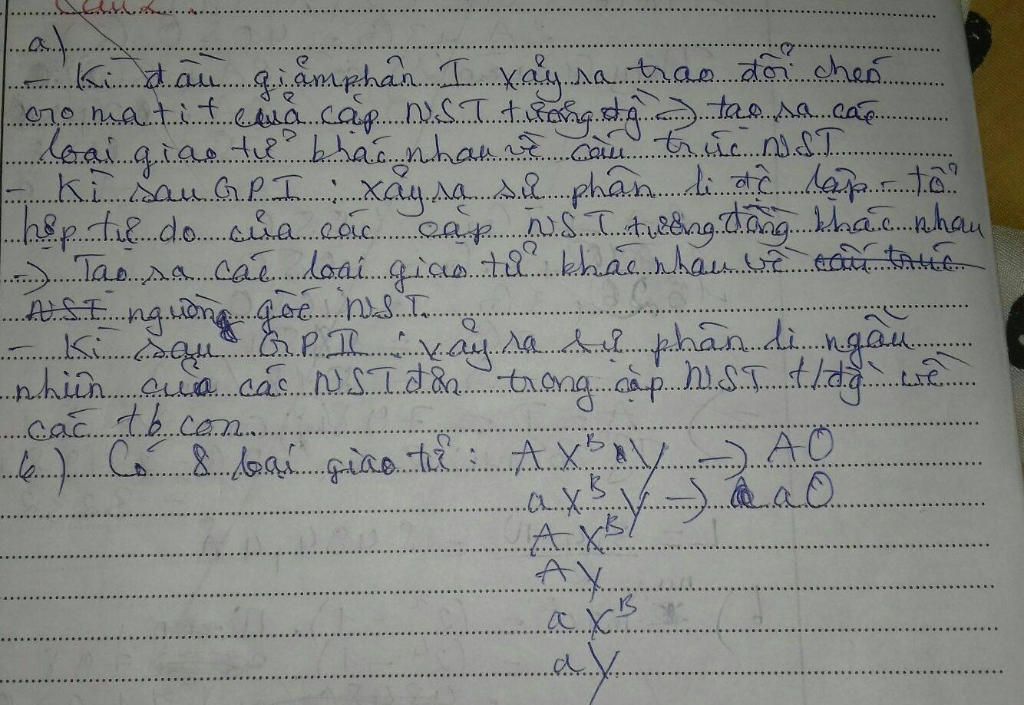 Câu 2.
a)
- Kì đầu giảm phân I xảy ra trao đổi chéo
cromatit của cặp NST tương đg -> tạo ra các
loại giao tử khác nhau về cấu trúc NST
- Kì sau GPI : xảy ra sự phân li độc lập - tổ
hợp tự do của các cặp NST tương đồng khác nhau
-> Tạo ra các loại giao tử khác nhau về cấu trúc
NST nguồn gốc NST.
- Kì sau GP II : xảy ra sự phân li ngẫu
nhiên của các NST đơn trong cặp NST t/đg về
các tb con.
b) Có 8 loại giao tử : A X^B Y -> AO
a X^B Y -> aO
A X^B
A Y
a X^B
a Y